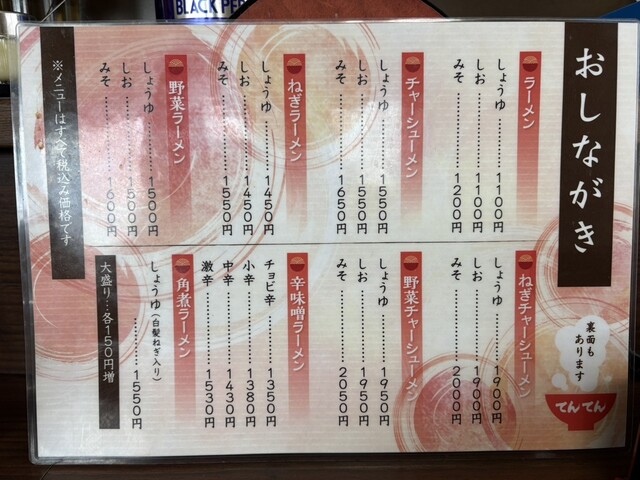 BLACK PEP
おしながき
ラーメン
しょうゆ………………1100円
しお………………1100円
みそ………………1200円
チャーシューメン
しょうゆ………………1550円
しお………………1550円
みそ………………1650円
ねぎラーメン
しょうゆ………………1450円
しお………………1450円
みそ………………1550円
野菜ラーメン
しょうゆ………………1500円
しお………………1500円
みそ………………1600円
※メニューはすべて税込み価格です
ねぎチャーシューメン
しょうゆ………………1900円
しお………………1900円
みそ………………2000円
野菜チャーシューメン
しょうゆ………………1950円
しお………………1950円
みそ………………2050円
辛味噌ラーメン
チョビ辛………………1350円
小辛………………1380円
中辛………………1430円
激辛………………1530円
角煮ラーメン
しょうゆ(白髪ねぎ入り)
………………1550円
大盛り…各150円増
裏面も
あります
てんてん